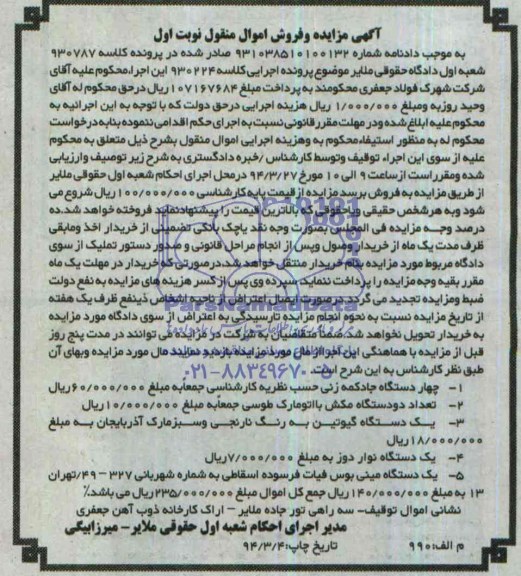 آگهی مزایده وفروش اموال منقول نوبت اول
به موجب دادنامه شماره ۹۳۱۰۳۸۵۱۰۱۰۰۱۳۲ صادر شده در پرونده کلاسه ۹۳۰۷۸۷
شعبه اول دادگاه حقوقی ملایر موضوع پرونده اجرایی کلاسه ۹۳۰۲۲۴ این اجرا،محکوم علیه آقای
شرکت شهرک فولاد جعفری محکومند به پرداخت مبلغ ۱۰۷۱۶۷۶۸۴ ریال درحق محکوم له آقای
وحید روزبه ومبلغ ۱/۰۰۰/۰۰۰ ریال هزینه اجرایی درحق دولت که با توجه به این اجرائیه به
محکوم علیه ابلاغ شده ودر مهلت مقرر قانونی نسبت به اجرای حکم اقدامی ننموده بنابه درخواست
محکوم له به منظور استیفاء محکوم به وهزینه اجرایی اموال منقول بشرح ذیل متعلق به محکوم
علیه از سوی این اجراء توقیف وتوسط کارشناس /خبره دادگستری به شرح زیر توصیف وارزیابی
شده ومقرر است ازساعت ۹ الی ۱۰ مورخ ۹۴/۳/۲۷ درمحل اجرای احکام شعبه اول حقوقی ملایر
از طریق مزایده به فروش برسد مزایده ازقیمت پایه کارشناسی ۱۰۰/۰۰۰/۰۰۰ ریال شروع می
شود وبه هرشخص حقیقی ویاحقوقی که بالاترین قیمت را پیشنهادنماید فروخته خواهد شد.ده
درصد وجه مزایده فی المجلس بصورت وجه نقد یاچک بانکی تضمینی از خریدار اخذ ومابقی
ظرف مدت یک ماه از خریدار وصول وپس از انجام مراحل قانونی و صدور دستور تملیک از سوی
دادگاه مربوط مورد مزایده بنام خریدار منتقل خواهد شد.درصورتی که خریدار در مهلت یک ماه
مقرر بقیه وجه مزایده را پرداخت ننماید سپرده وی پس از کسر هزینه های مزایده به نفع دولت
ضبط ومزایده تجدید می گردد درصورت ایصال اعتراض از ناحیه اشخاص ذینفع ظرف یک هفته
از تاریخ مزایده نسبت به نحوه انجام مزایده تارسیدگی به اعتراض از سوی دادگاه مورد مزایده
به خریدار تحویل نخواهد شد.ضمنا متقاضیان به شرکت در مزایده می توانند در مدت پنج روز
قبل از مزایده با هماهنگی این اجرا از مال مورد مزایده بازدید نمایند مال مورد مزایده وبهای آن
طبق نظر کارشناس به این شرح است.
۰۲۱-۸۸۳۴۹۶۷۰
ParsNamadData
۱- چهار دستگاه جادکمه زنی حسب نظریه کارشناسی جمعاً به مبلغ ۶۰/۰۰۰/۰۰۰ ریال
۲- تعداد دودستگاه مکش بااتومارک طوسی جمعاً به مبلغ ۱۰/۰۰۰/۰۰۰ ریال
۳- یک دستگاه گیوتین به رنگ نارنجی وسبزمارک آذربایجان به مبلغ
۱۸/۰۰۰/۰۰۰ ریال
۴- یک دستگاه نوار دوز به مبلغ ۷/۰۰۰/۰۰۰ ریال
۵- یک دستگاه مینی بوس فیات فرسوده اسقاطی به شماره شهربانی ۳۲۷ – ۴۹/تهران
۱۳ به مبلغ ۱۴۰/۰۰۰/۰۰۰ ریال جمع کل اموال مبلغ ۲۳۵/۰۰۰/۰۰۰ ریال می باشد٪
نشانی اموال توقیف- سه راهی تور جاده ملایر – اراک کارخانه ذوب آهن جعفری
مدیر اجرای احکام شعبه اول حقوقی ملایر– میرزابیگی
م الف:۹۹۰ تاریخ چاپ:۹۴/۳/۴